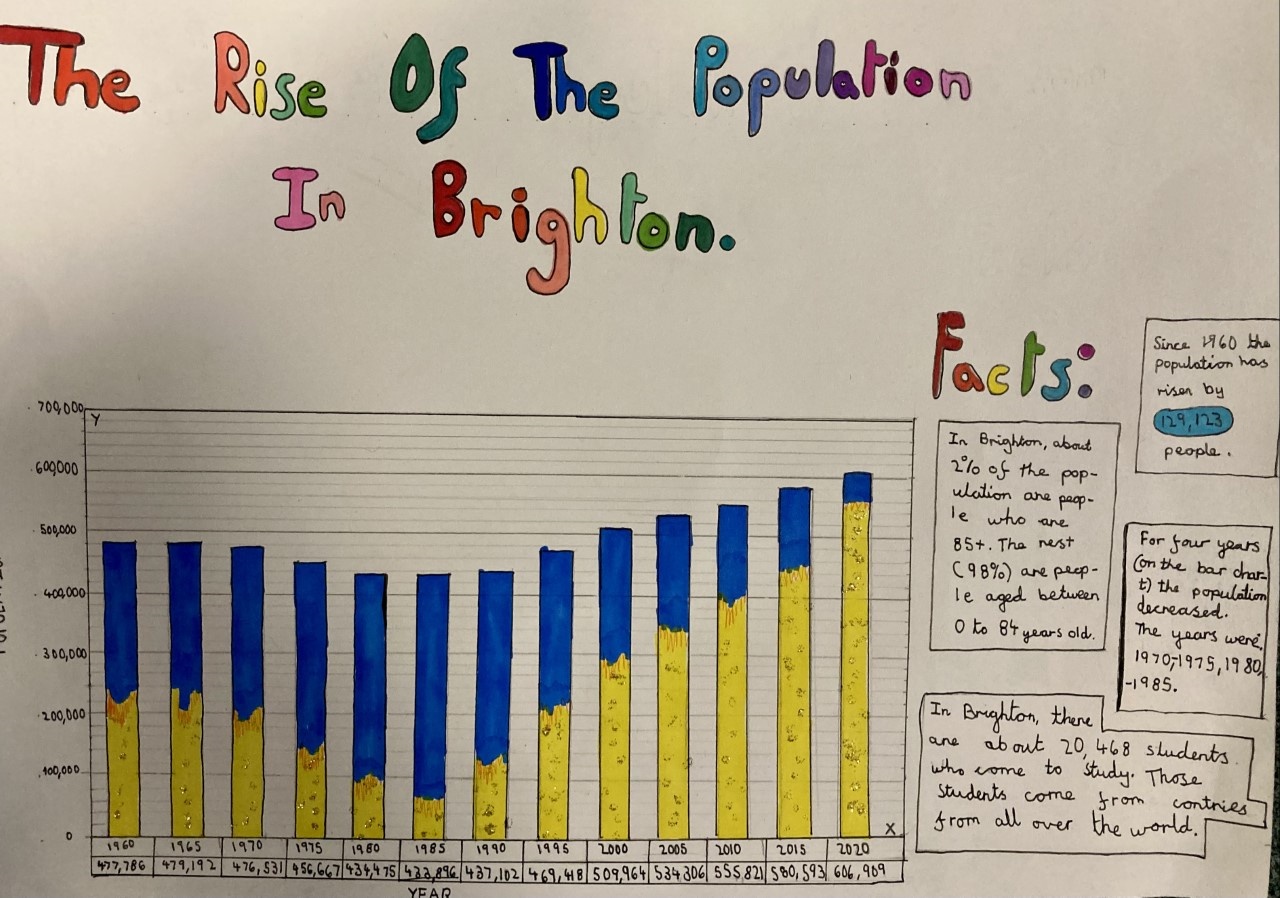 The Rise Of The Population
In Brighton.
Facts:
Since 1960 the
population has
risen by
129,123
people.
In Brighton, about
2% of the pop-
ulation are peop-
le who are
85+. The rest
(98%) are peop-
le aged between
0 to 84 years old.
For four years
(on the bar char-
t) the population
decreased.
The years were,
1970,-1975, 1980,
-1985.
In Brighton, there
are about 20,468 students
who come to study. Those
students come from contries
from all over the world.
Y
700,000
600,000
500,000
400,000
300,000
200,000
100,000
0
X
1960 1965 1970 1975 1980 1985 1990 1995 2000 2005 2010 2015 2020
477,786 479,192 476,531 456,667 434,475 433,896 437,102 469,418 509,964 534306 555,821 580,593 606,909
YEAR